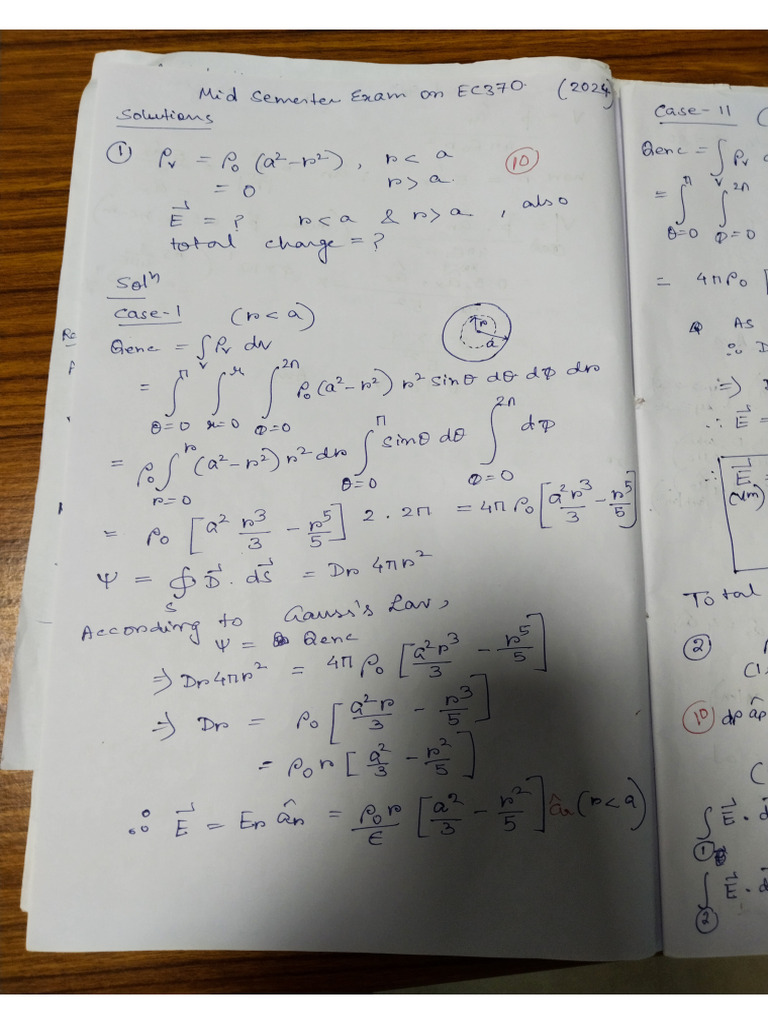 Mid Semester Exam on EC370. (2024)
Solutions
① ρᵥ = ρ₀ (a²-r²), r < a
= 0 r > a.
⑩
E⃗ = ? r < a & r > a, also
total charge = ?
Solⁿ
Case-I (r < a)
r
a
Qenc = ∫ᵥ ρᵥ dv
= ∫_{θ=0}^{π} ∫_{r=0}^{r} ∫_{φ=0}^{2π} ρ₀(a²-r²) r² sinθ dθ dφ dr
= ρ₀ ∫_{r=0}^{r} (a²-r²) r² dr ∫_{θ=0}^{π} sinθ dθ ∫_{φ=0}^{2π} dφ
= ρ₀ [a² r³/3 - r⁵/5] 2 · 2π = 4πρ₀ [a²r³/3 - r⁵/5]
Ψ = ∮_S D⃗ · dS⃗ = Dr 4πr²
According to Gauss's Law,
Ψ = Qenc
⇒ Dr 4πr² = 4πρ₀ [a²r³/3 - r⁵/5]
⇒ Dr = ρ₀ [a²r/3 - r³/5]
= ρ₀ r [a²/3 - r²/5]
∴ E⃗ = Er âr = ρ₀r/ϵ [a²/3 - r²/5] âr (r < a)
Case-II (
Qenc = ∫ᵥ ρᵥ
= ∫_{θ=0}^{π} ∫_{φ=0}^{2π}
= 4πρ₀ [
As
∴ D
⇒ D
∴ E⃗ =
∴ E⃗ =
(V/m)
Total
②
(1,
⑩ dρ âρ
(
∫① E⃗ · d
∫② E⃗ · d